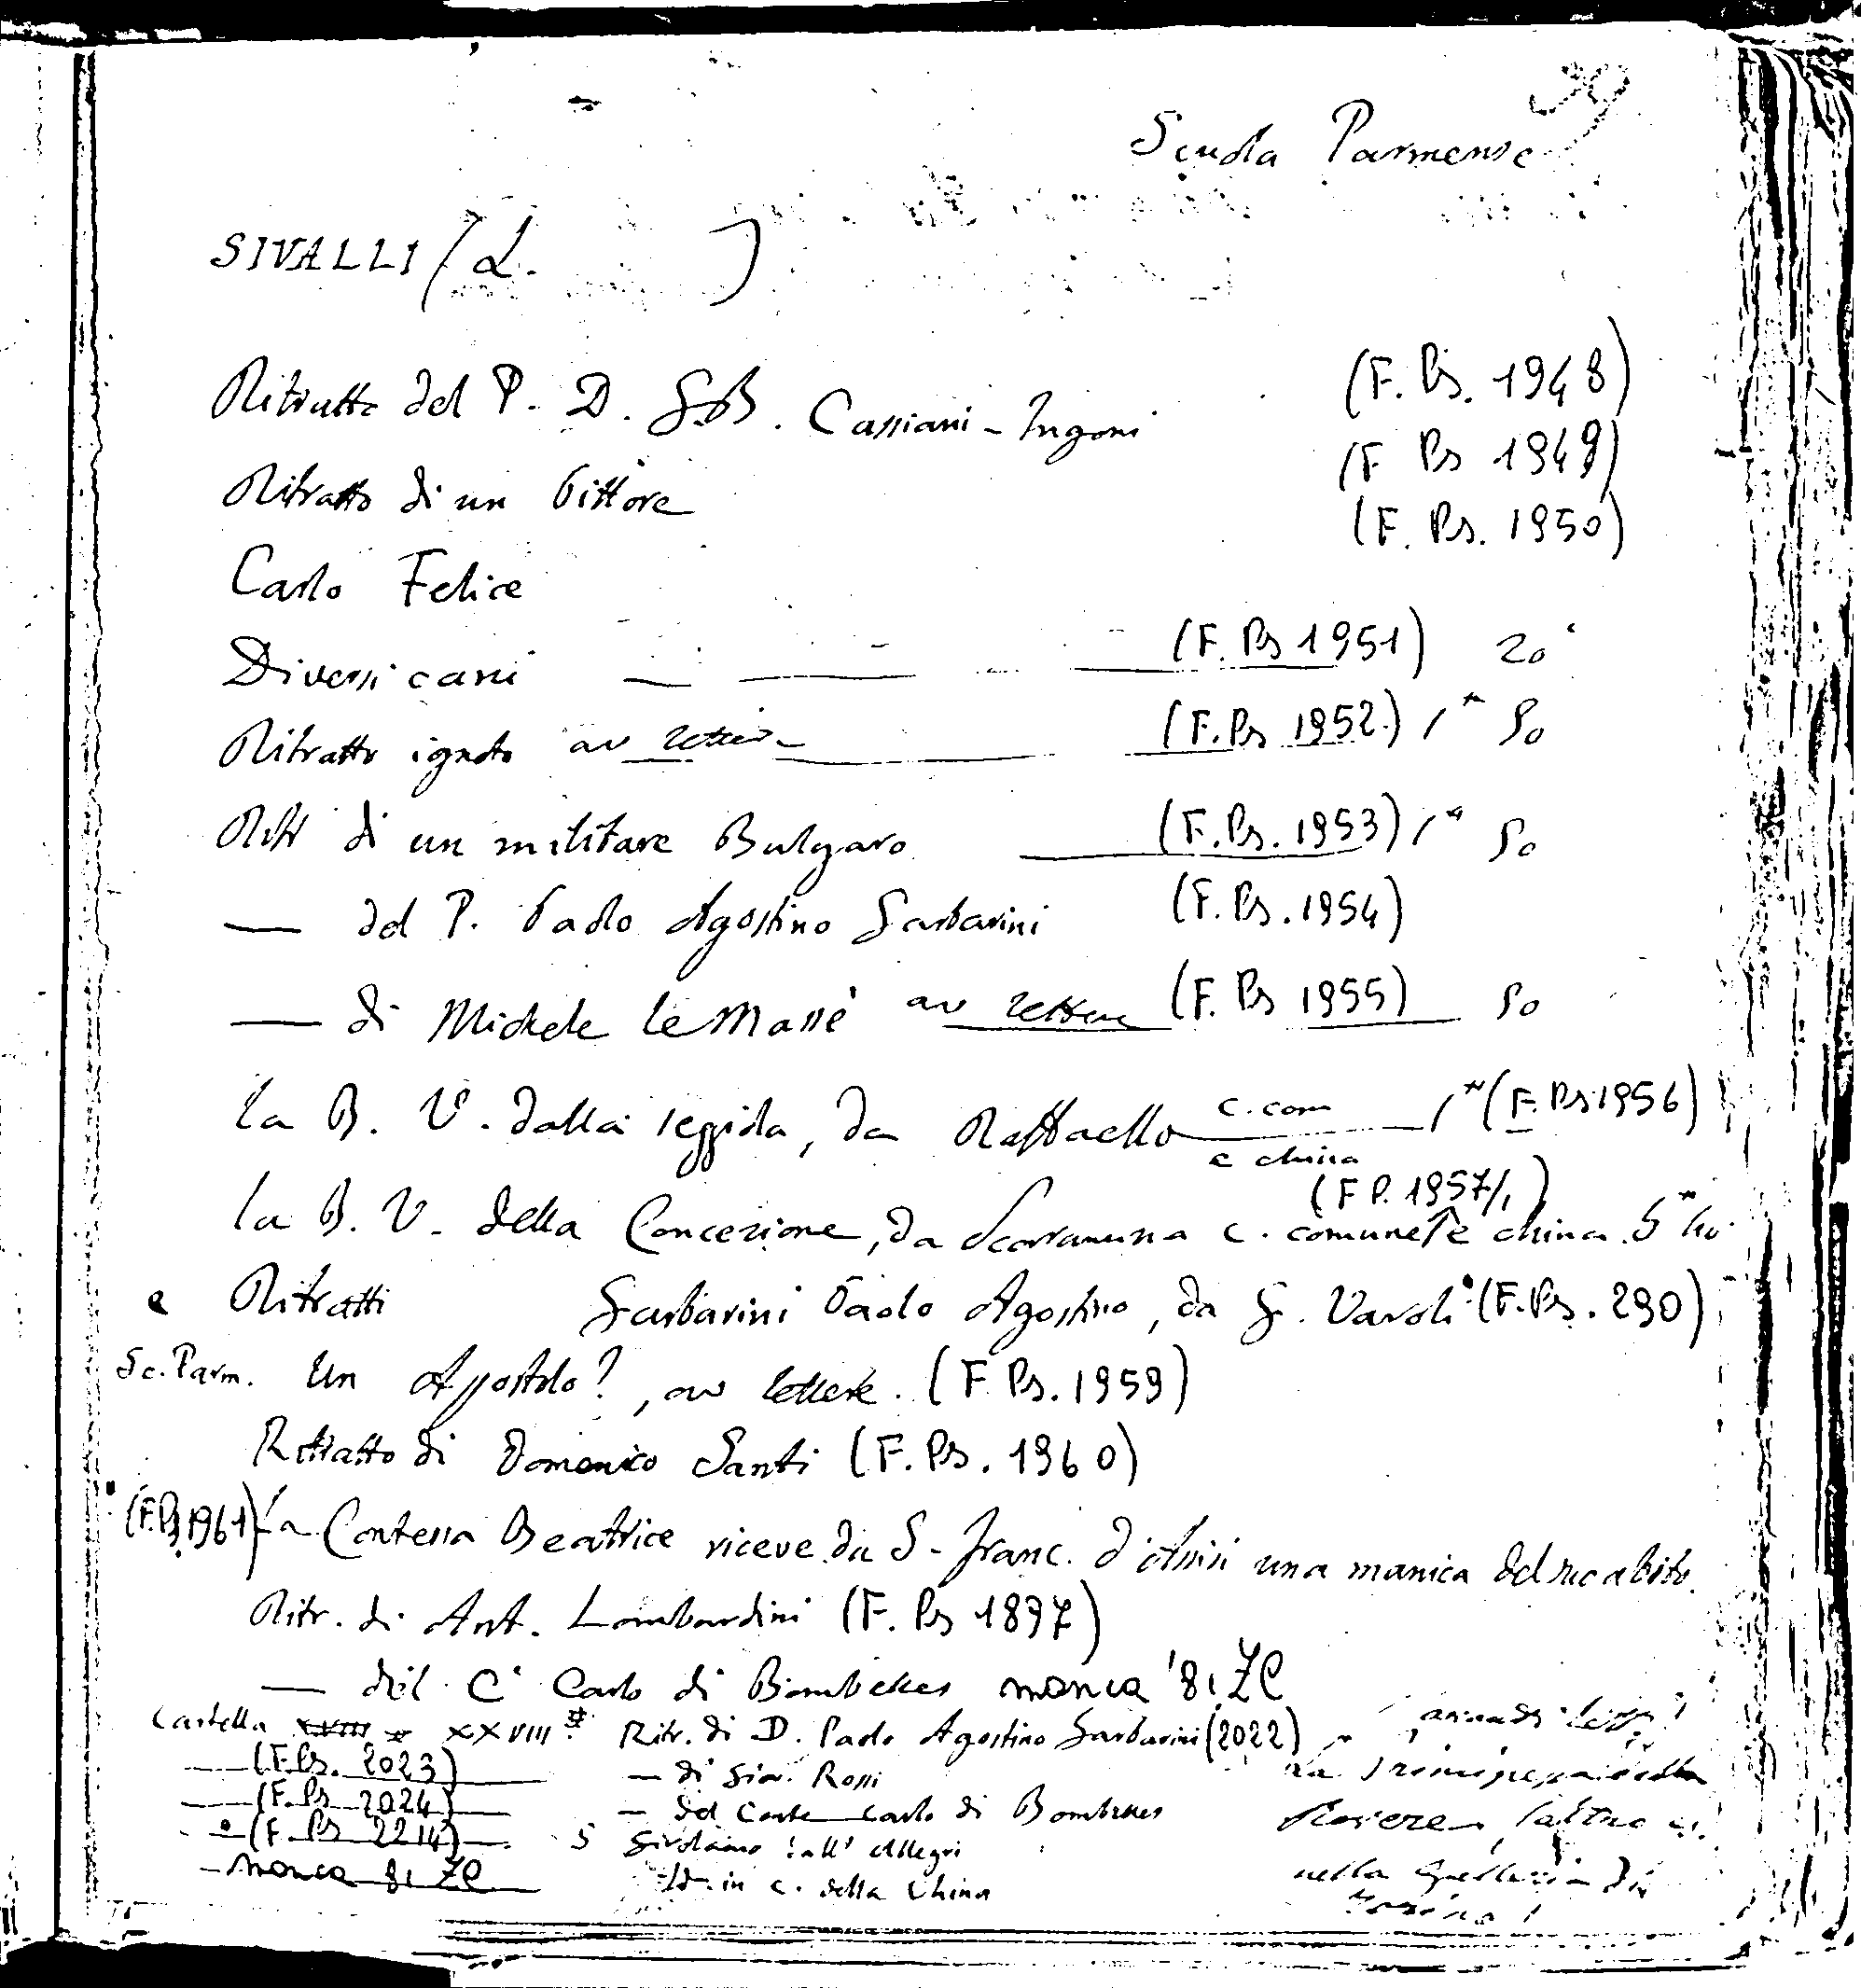 39
Scuola Parmense
SIVALLI (L. )
Ritratto del P. D. G.B. Cassiani-Ingoni (F. Ps. 1948)
Ritratto di un Pittore (F Ps 1949)
Carlo Felice (F. Ps. 1950)
Diversi cani (F. Ps 1951) 20
Ritratto ignoto av lettere (F. Ps 1952) 1ª 50
Ritr di un militare Bulgaro (F. Ps. 1953) 1ª 50
— del P. Paolo Agostino Garbarini (F. Ps. 1954)
— di Michele Le Massé av lettere (F. Ps 1955) 50
La B. V. dalla seggiola, da Raffaello c. com e china 1ª (F. Ps 1956)
La B. V. della Concezione, da Scaramuzza c. comune e china. 5ª (F P. 1957/1)
e Ritratti Garbarini Paolo Agostino, da G. Varoli (F. Ps. 290)
Sc. Parm. Un Apostolo?, av lettere. (F. Ps. 1959)
Ritratto di Domenico Santi (F. Ps. 1960)
(F. Ps 1961) La Contessa Beatrice riceve da S. Franc. d'Assisi una manica del suo abito.
Ritr. di Ant. Lombardini (F. Ps 1897)
— del C. Carlo di Bombelles manca '81 ZC
Cartella XVIII XXVIII Ritr. di D. Paolo Agostino Garbarini (2022)
— (F. Ps. 2023) — di Giov. Rossi
— (F. Ps 2024) — del Conte Carlo di Bombelles
— (F. Ps 2214) — 5 Girolamo dall' Allegri
— manca 81 ZC Id. in c. della China
nella Galleria di